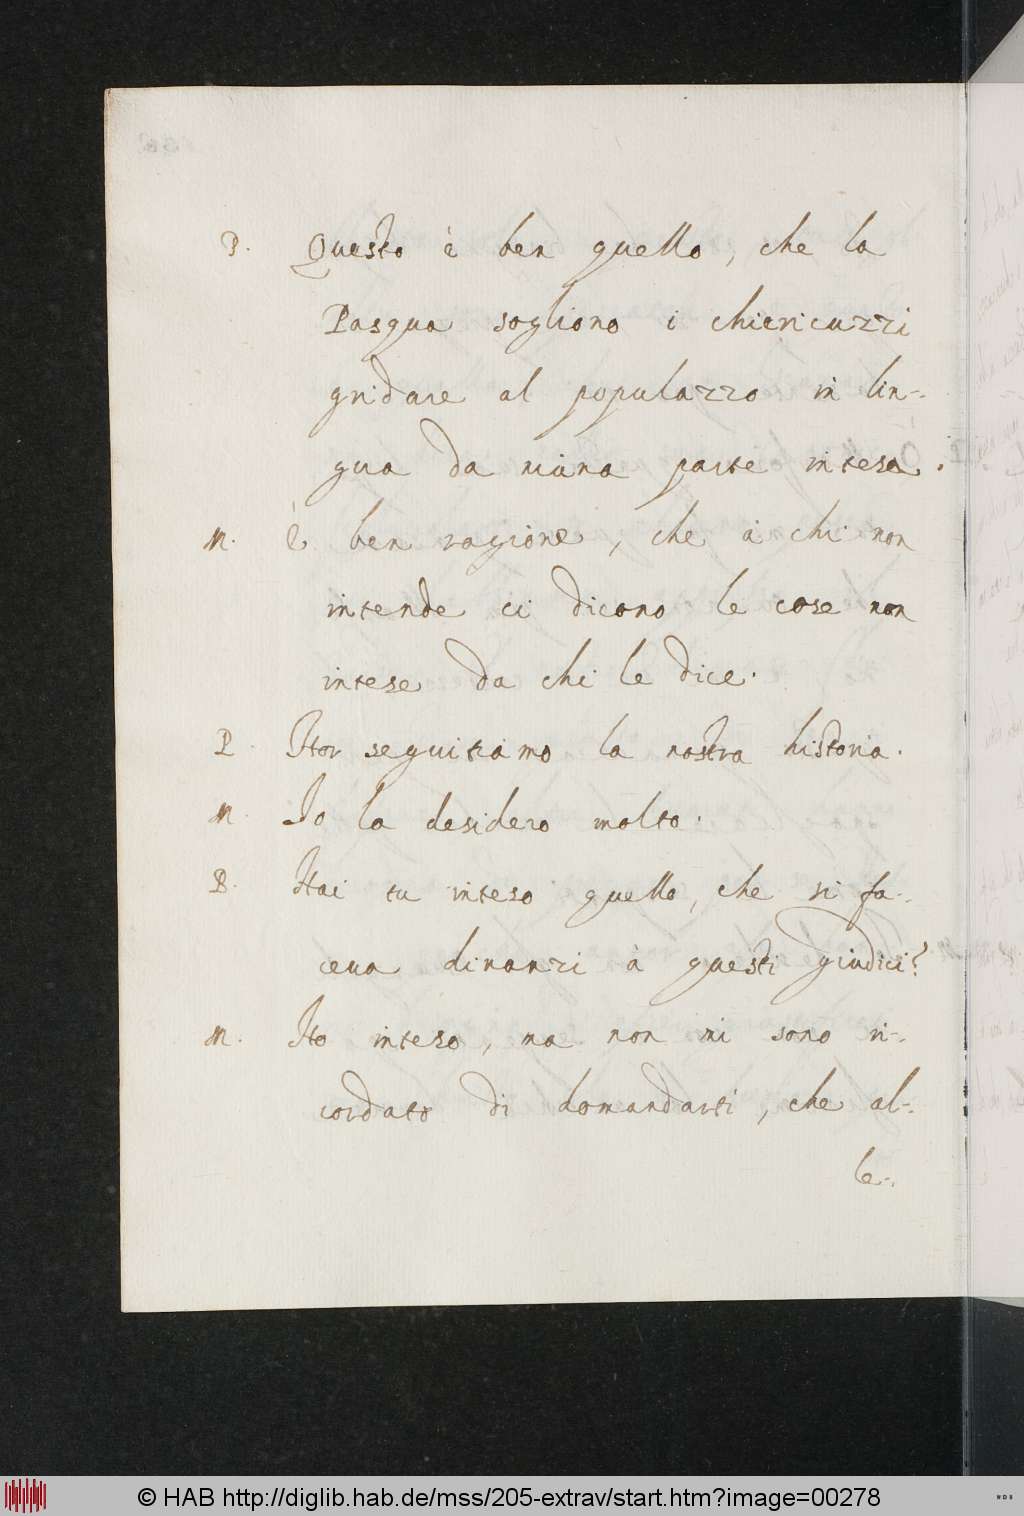 P. Questo è ben quello, che la
Pasqua sogliono i chiericuzzi
gridare al populazzo in lin-
gua da niuna parte intesa.
M. È ben ragione, che à chi non
intende ci dicono le cose non
intese da chi le dice.
P. Hor seguitiamo la nostra historia.
M. Io la desidero molto.
P. Hai tu inteso quello, che si fa-
ceua dinanzi à questi giudici?
M. Ho inteso, ma non mi sono ri-
cordato di domandarti, che al-
le-
© HAB http://diglib.hab.de/mss/205-extrav/start.htm?image=00278